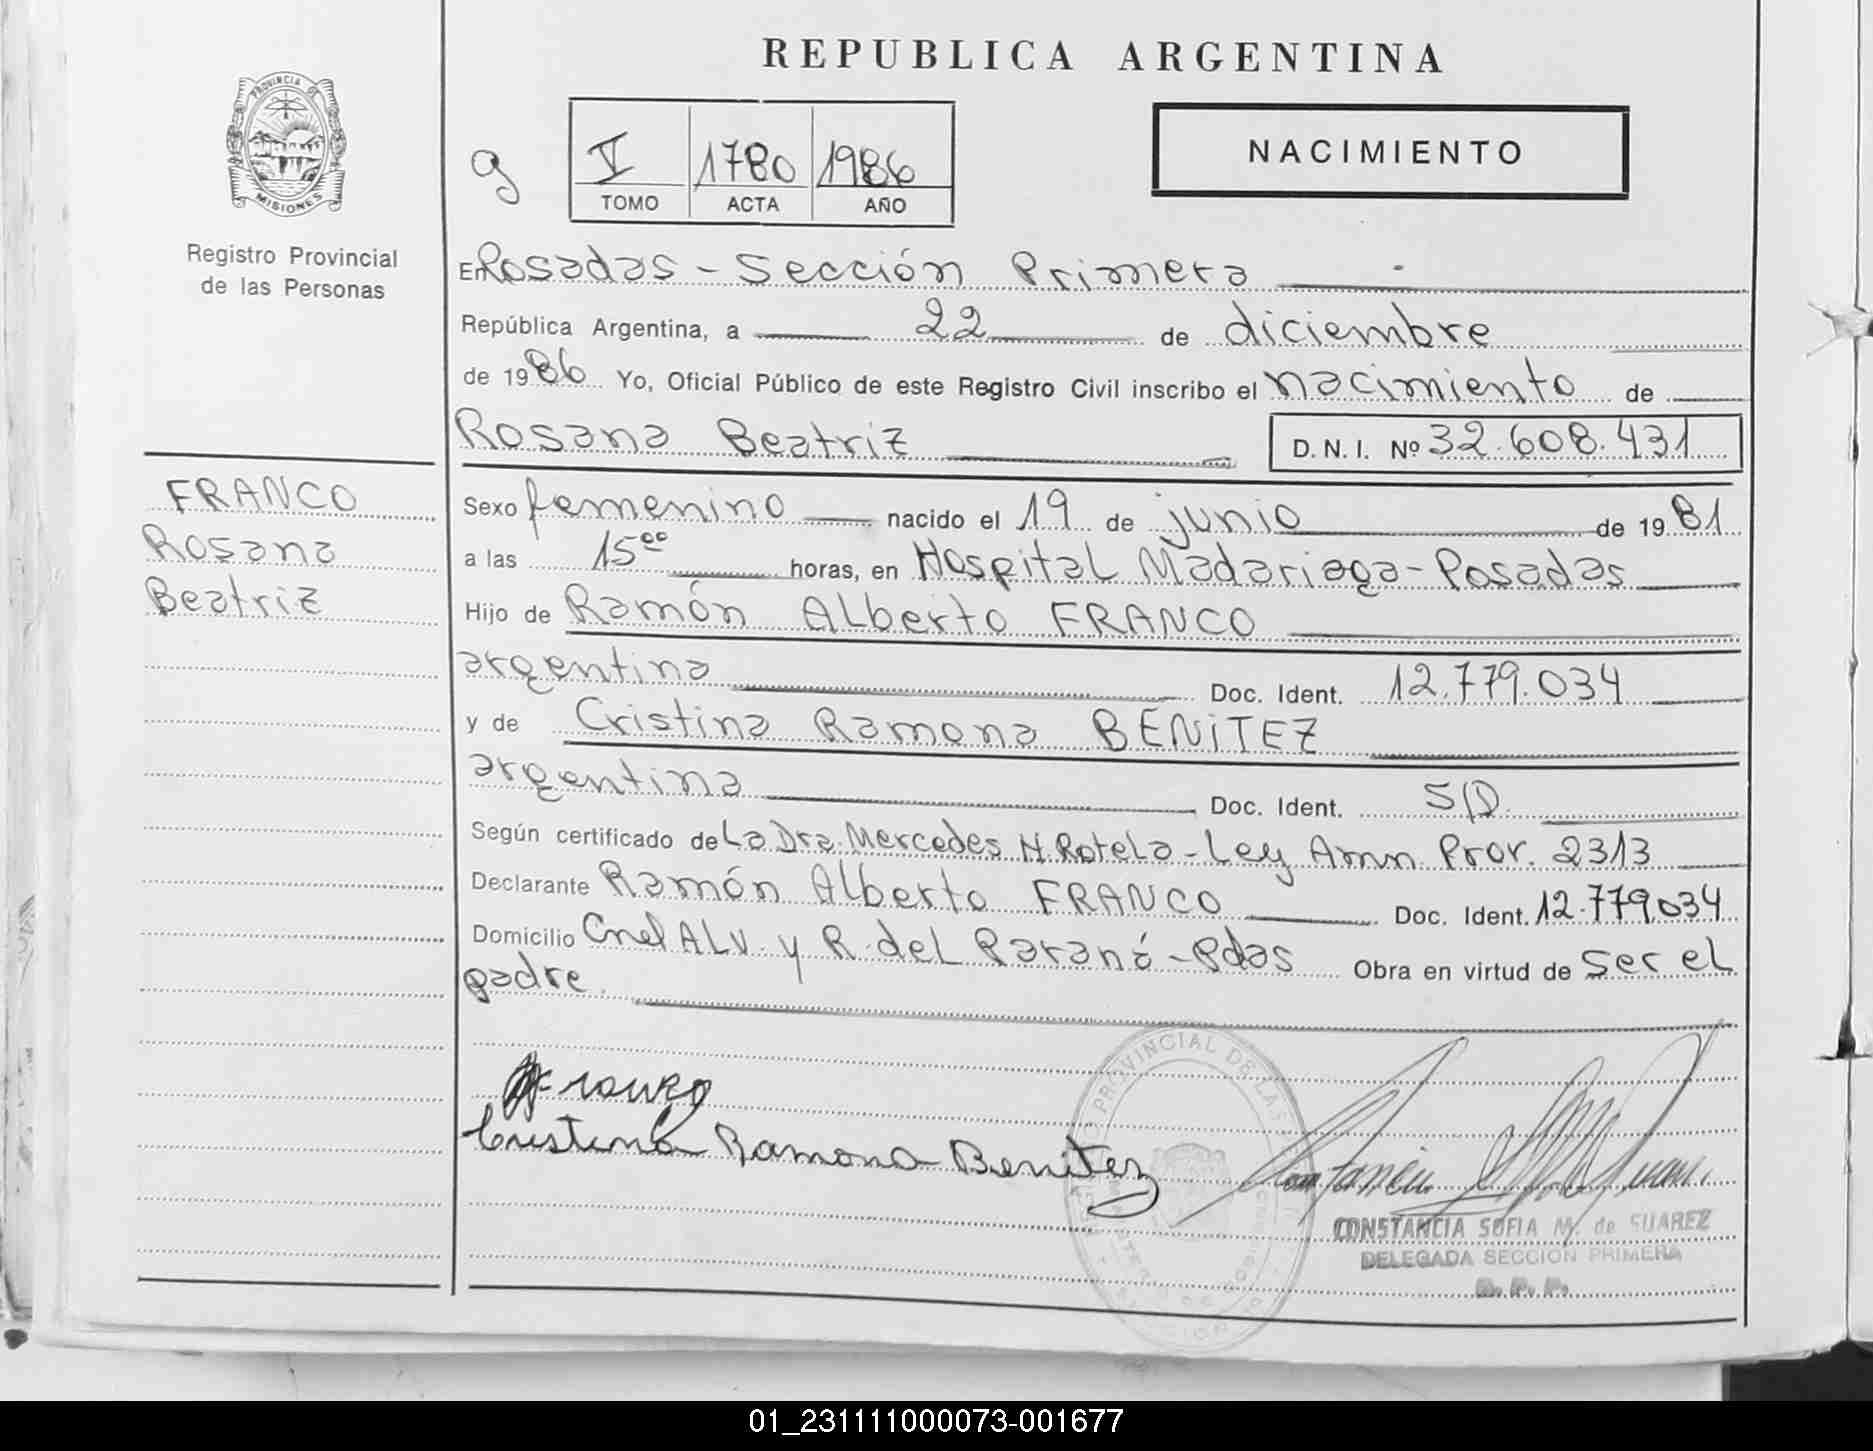 REPUBLICA ARGENTINA
PROVINCIA DE
MISIONES
Registro Provincial
de las Personas
g
V 1780 1986
TOMO ACTA AÑO
NACIMIENTO
En Posadas - Sección Primera
República Argentina, a 22 de diciembre
de 1986 Yo, Oficial Público de este Registro Civil inscribo el nacimiento de
Rosana Beatriz D.N.I. Nº 32.608.431
FRANCO
Rosana
Beatriz
Sexo femenino nacido el 19 de junio de 1981
a las 15⁰⁰ horas, en Hospital Madariaga - Posadas
Hijo de Ramón Alberto FRANCO
argentina Doc. Ident. 12.779.034
y de Cristina Ramona BENITEZ
argentina Doc. Ident. S/D.
Según certificado de La Dra. Mercedes H. Rotela - Ley Amn Prov. 2313
Declarante Ramón Alberto FRANCO Doc. Ident. 12.779034
Domicilio Cnel ALV. y R. del Paraná - Pdas Obra en virtud de ser el
padre.
Franco
Cristina Ramona Benitez
PROVINCIAL DE LAS
CONSTANCIA SOFIA M. de SUAREZ
DELEGADA SECCION PRIMERA
R. P. P.
01_231111000073-001677